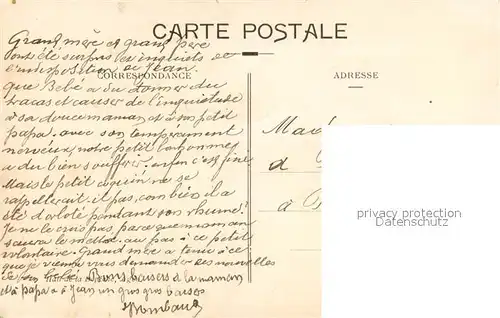 CARTE POSTALE
CORRESPONDANCE
ADRESSE
Grand mère et grand père
ont été surpris et inquiets de
l'indisposition de Jean.
que Bébé a du donner du
tracas et causer de l'inquiétude
à sa douce maman et à son petit
papa. avec son tempérament
nerveux, notre petit bonhomme
a du bien souffrir. enfin c'est fini
Mais le petit coquin ne se
rappellerait-il pas, combien il a
été dorloté pendant son rhume?
Je ne le crois pas, parce que maman
saura le mettre au pas à ce petit
volontaire. Grand mère a tenu à ce
que je vienne vous demander des nouvelles
Bons baisers à la maman
et à papa et à Jean un gros gros baiser
à
privacy protection
www.oldthing.de